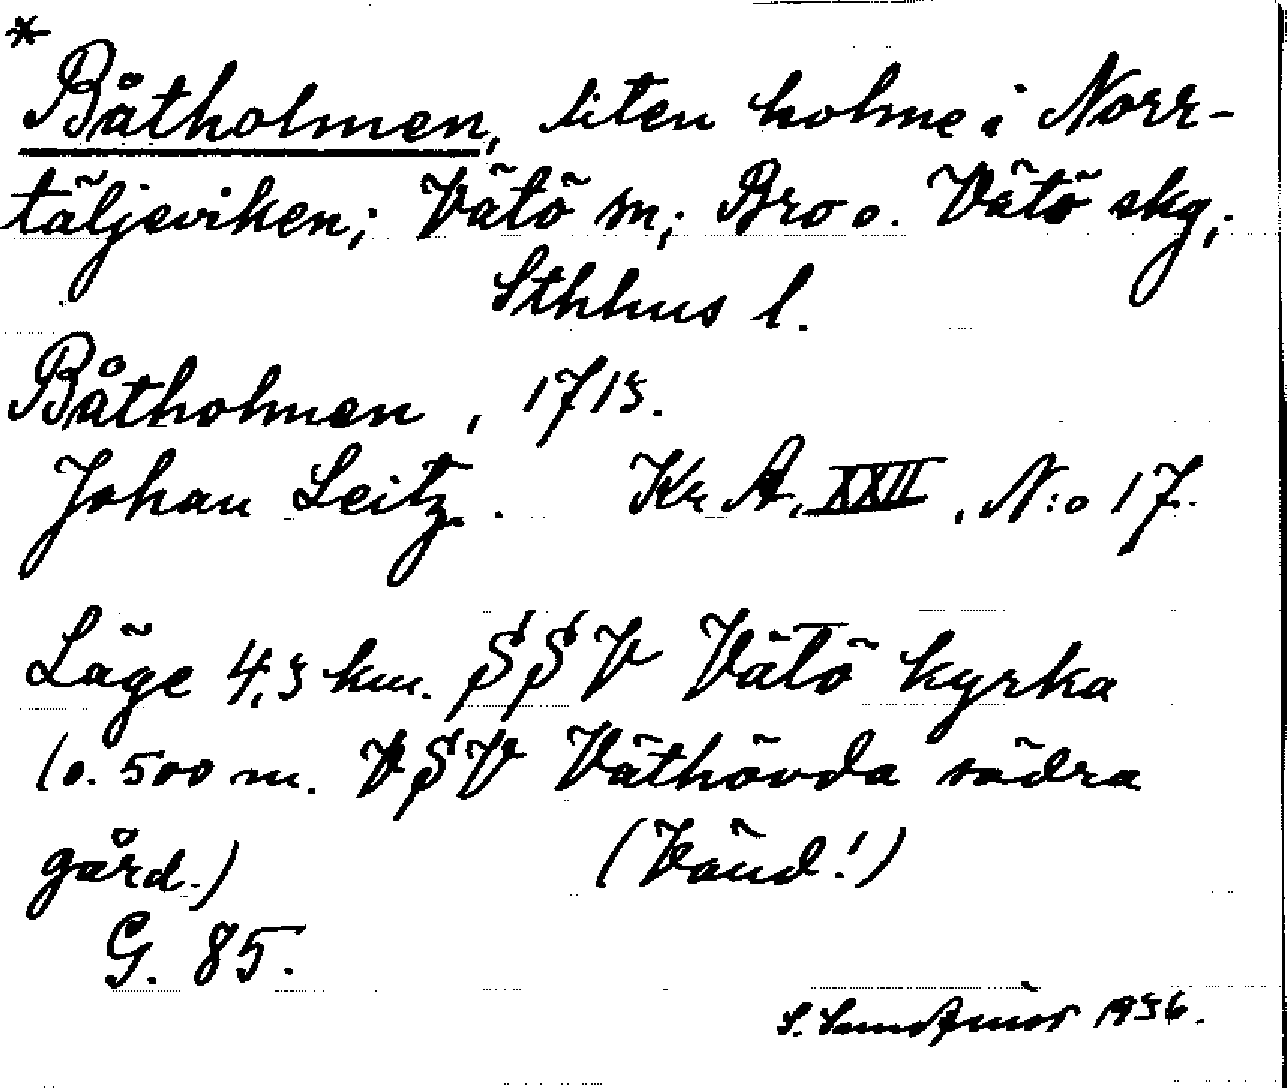 *
Båtholmen, liten holme i Norr-
täljeviken; Vätö sn; Bro o. Vätö skg,
Sthlms l.
Båtholmen, 1715.
Johan Leitz. Kr A. XXII, N:o 17.
Läge 4,5 km. SSV Vätö kyrka
(o. 500 m. VSV Väthövda södra
gård.) (Vänd!)
G. 85.
S. 1936.